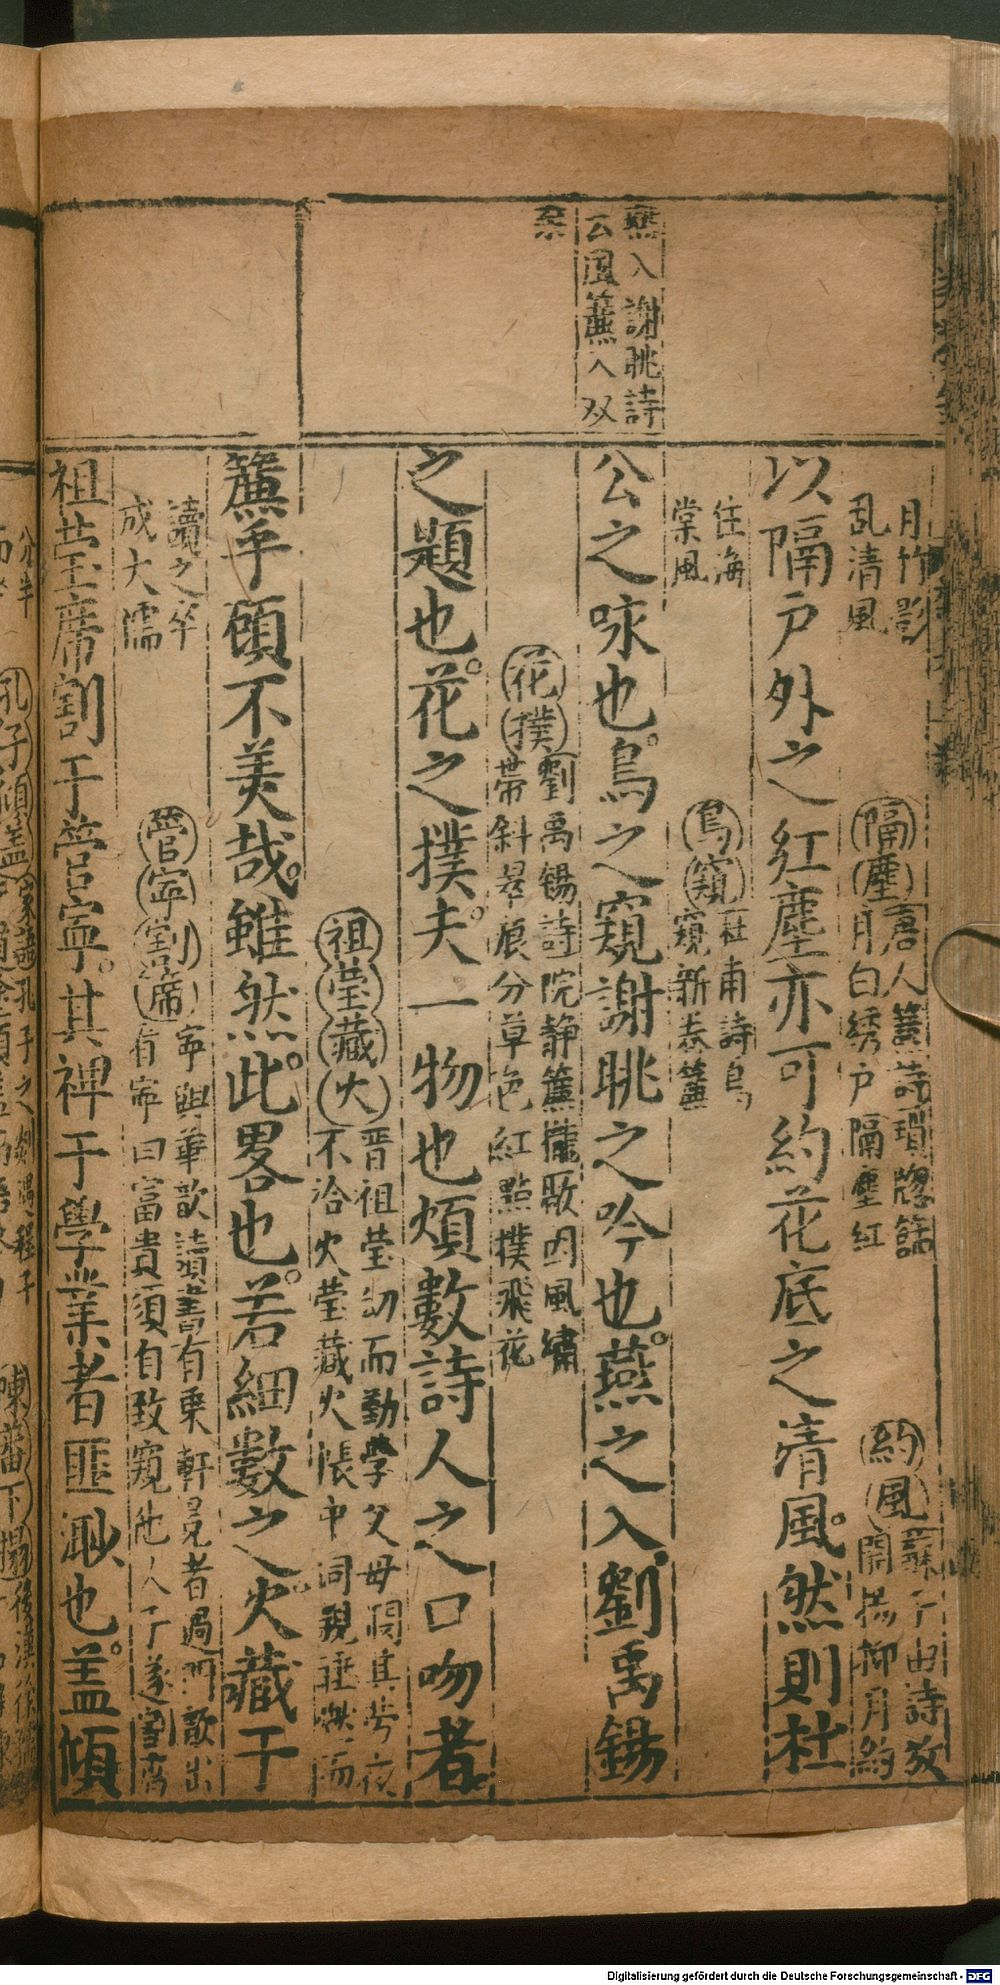 燕入謝眺詩
云風簾入双
燕
月竹影
乱清風
隔塵唐人簾詩瑣牕
月白綉戶隔塵紅
約風蘇子由詩故
開楊柳月約
以隔戶外之紅塵亦可約花底之清風然則杜
住海
棠風
烏窺杜甫詩烏
窺新卷簾
公之咏也烏之窺謝眺之吟也燕之入劉禹錫
花撲劉禹錫詩院静簾櫳啟因風繡
帶斜晷痕分草色紅點撲飛花
之題也花之撲夫一物也煩數詩人之口吻者
祖莹藏火晋祖莹幼而勤学父母悶其劳夜
不洽火莹藏火帳中伺親
簾乎頋不美哉雖然此畧也若細數之火藏于
讀之卒
成大儒
管寜割席寜與華歆讀書有乗軒冕者過門歆出
有寜曰富貴須自致窺他人子遂割席
祖莹席割于管寜其裨于學業者匪渺也盖傾
Digitalisierung gefördert durch die Deutsche Forschungsgemeinschaft - DFG